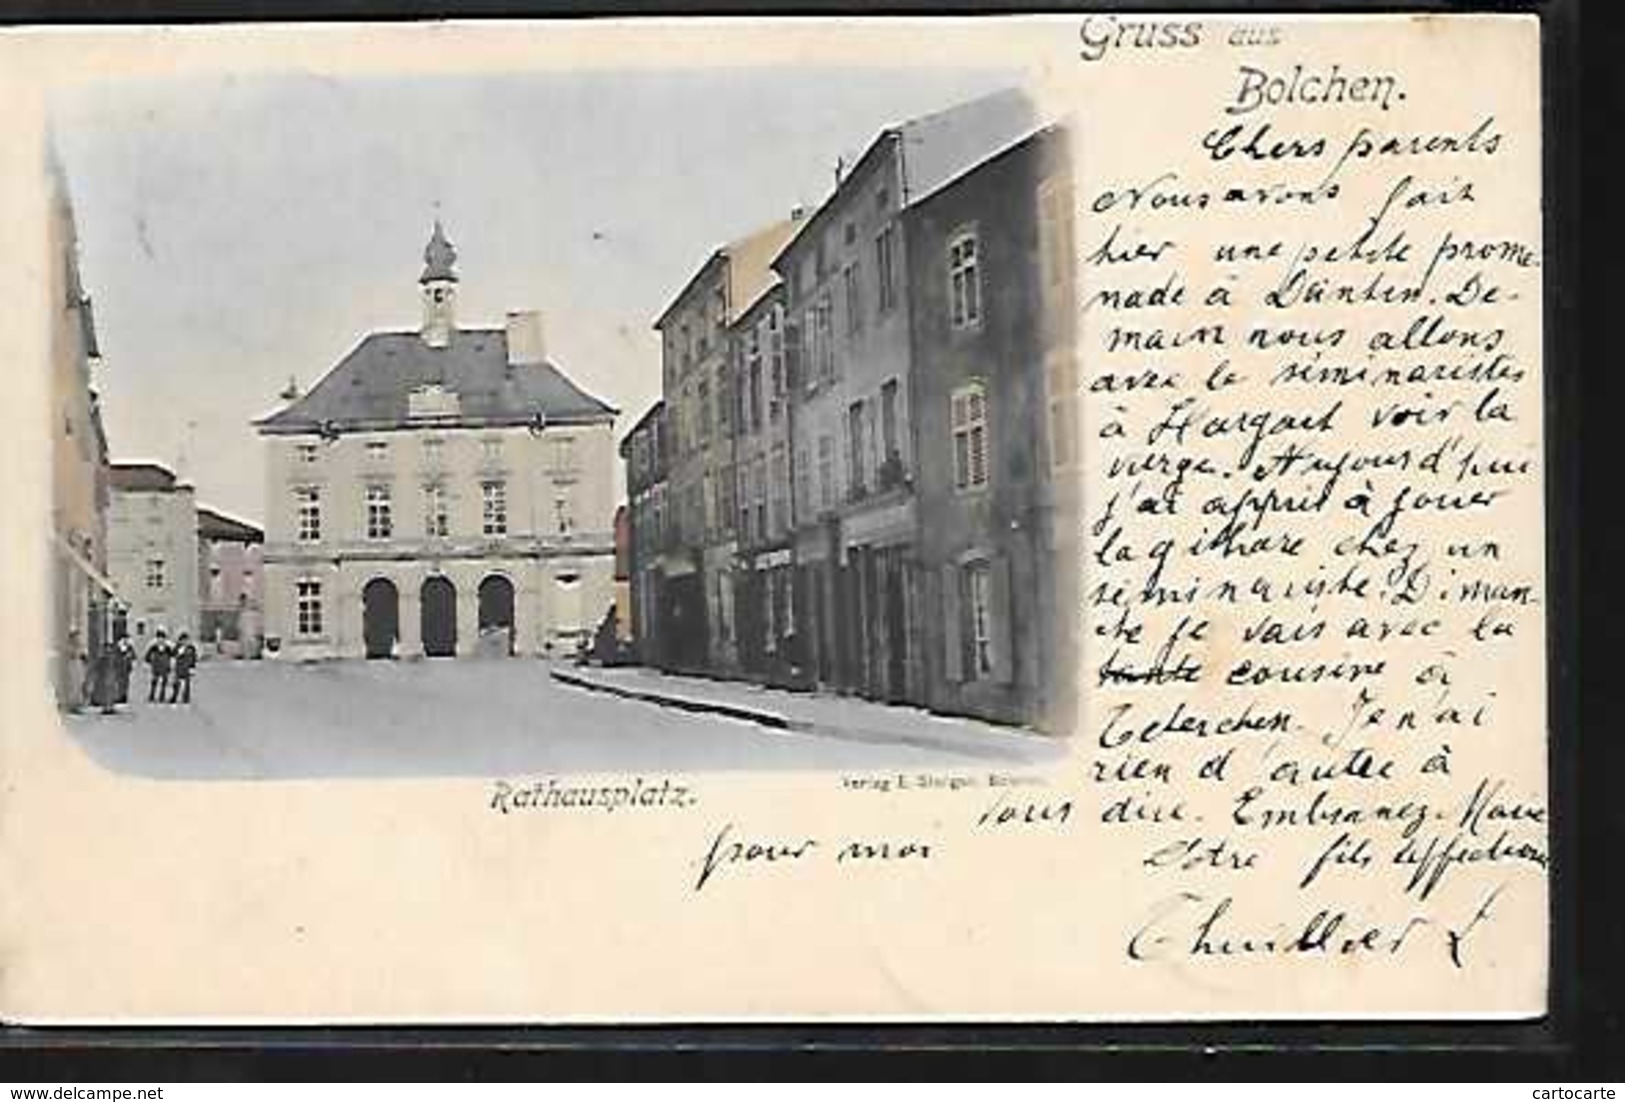 Gruss aus
Bolchen.
Chers parents
Nous avons fait
hier une petite prome-
nade à Dentin. De-
main nous allons
avec le séminaristes
à Hargart voir la
vierge. Aujourd'hui
j'ai appris à jouer
la githare chez un
séminariste. Diman-
che je vais avec la
tante cousine à
Teterchen. Je n'ai
rien d'autre à
vous dire. Embrassez-Marie
pour moi
Votre fils affectionné
Thuillier L
Rathausplatz.
Verlag E. Stenger, Bolchen.
cartocarte
delcampe.net